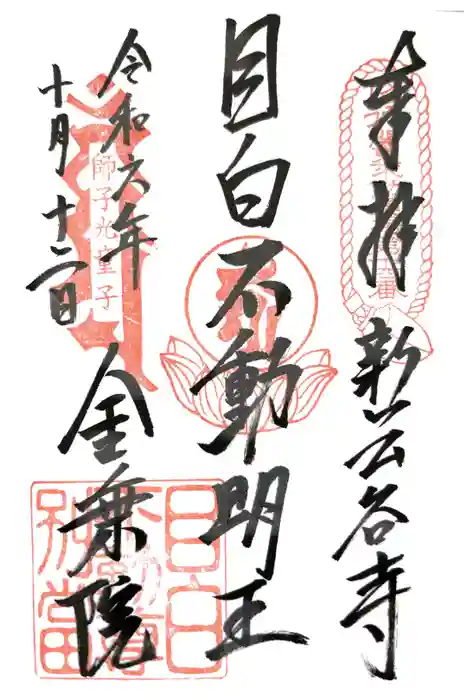 奉拝 新長谷寺
目白不動明王
令和六年
十月十二日
金乗院
師子光童子